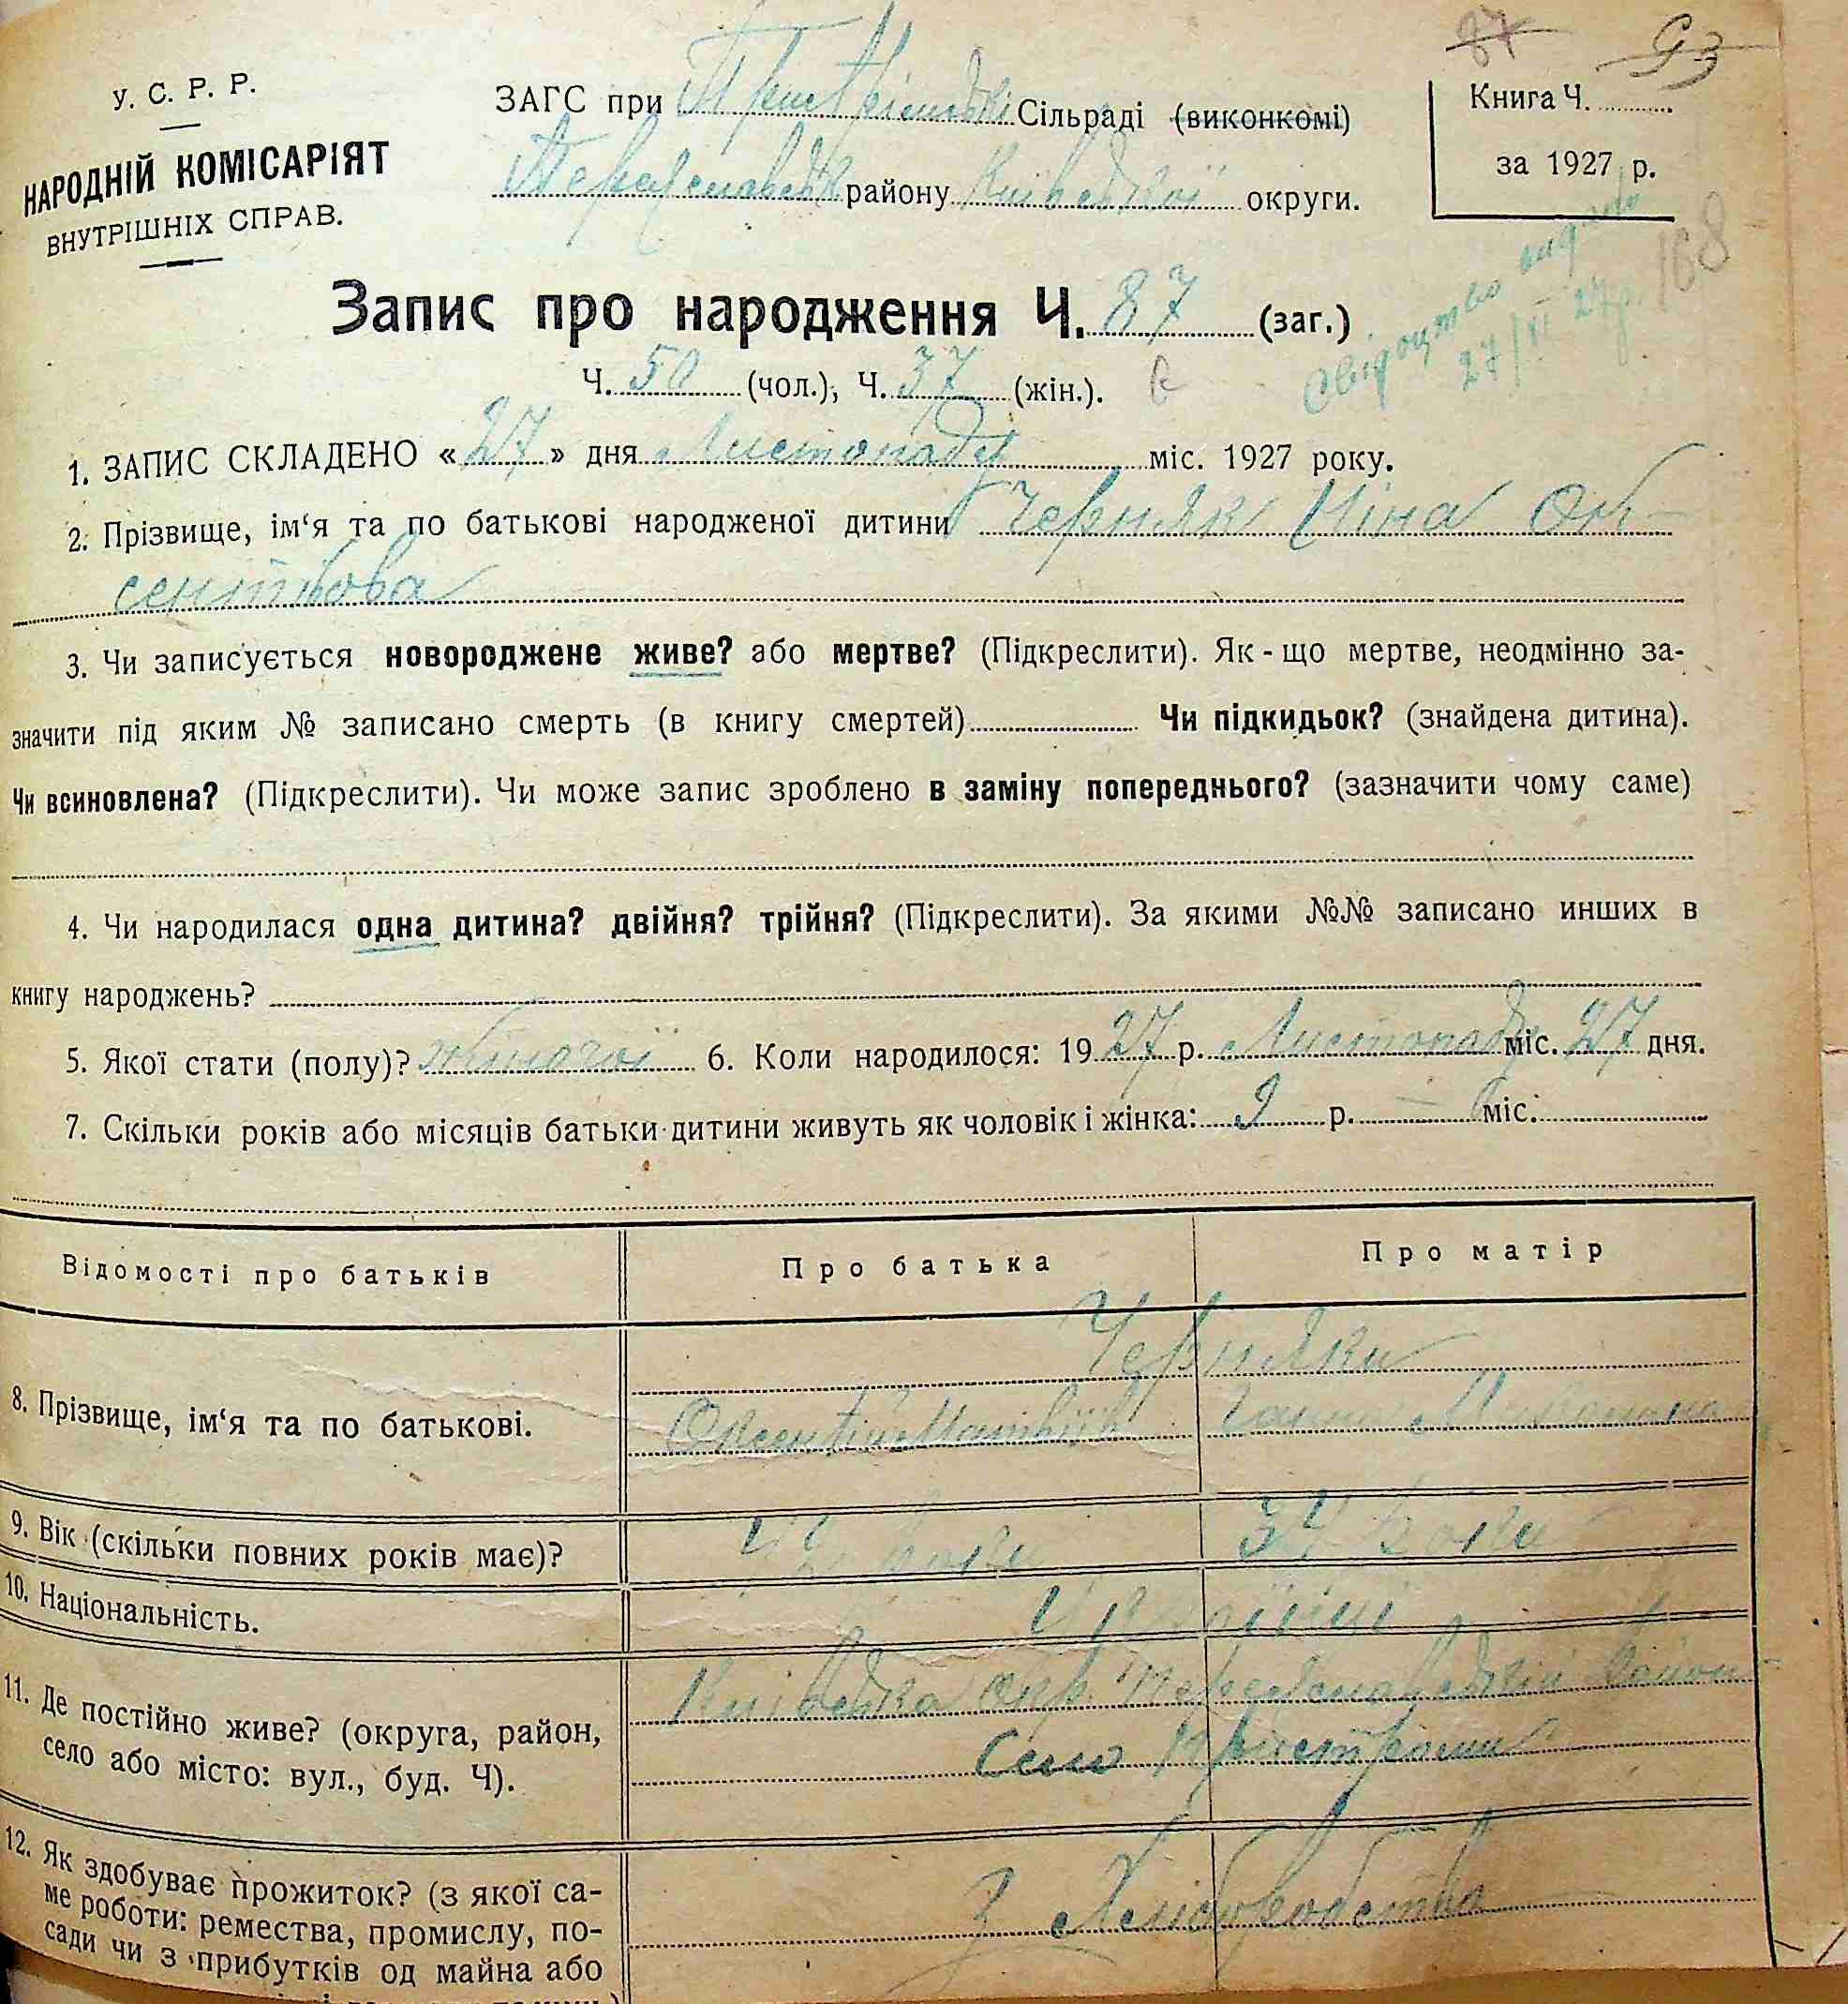 87 93
У. С. Р. Р.
НАРОДНІЙ КОМІСАРІЯТ
ВНУТРІШНІХ СПРАВ.
ЗАГС при Сільраді (виконкомі)
району Київської округи.
Книга Ч.
за 1927 р.
168
Свідоцтво видано
27/XI 27р.
Запис про народження Ч. 87 (заг.)
Ч. 50 (чол.), Ч. 37 (жін.).
1. ЗАПИС СКЛАДЕНО « 27 » дня Листопада міс. 1927 року.
2. Прізвище, ім‘я та по батькові народженої дитини Черняк Ніна Ок-
сентьова
3. Чи записується новороджене живе? або мертве? (Підкреслити). Як-що мертве, неодмінно за-
значити під яким № записано смерть (в книгу смертей) Чи підкидьок? (знайдена дитина).
Чи всиновлена? (Підкреслити). Чи може запис зроблено в заміну попереднього? (зазначити чому саме)
4. Чи народилася одна дитина? двійня? трійня? (Підкреслити). За якими №№ записано инших в
книгу народжень?
5. Якої стати (полу)? жіночої 6. Коли народилося: 1927 р. Листопада міс. 27 дня.
7. Скільки років або місяців батьки дитини живуть як чоловік і жінка: 9 р. — міс.
Відомості про батьків Про батька Про матір
Черняки
8. Прізвище, ім‘я та по батькові. Оксентій Матвіїв Ганна
9. Вік (скільки повних років має)? роки 34 роки
10. Національність. Українці
11. Де постійно живе? (округа, район,
село або місто: вул., буд. Ч).
Київська окр. Переяславський район
Село Пристроми
12. Як здобуває прожиток? (з якої са-
ме роботи: ремества, промислу, по-
сади чи з прибутків од майна або
З хліборобства